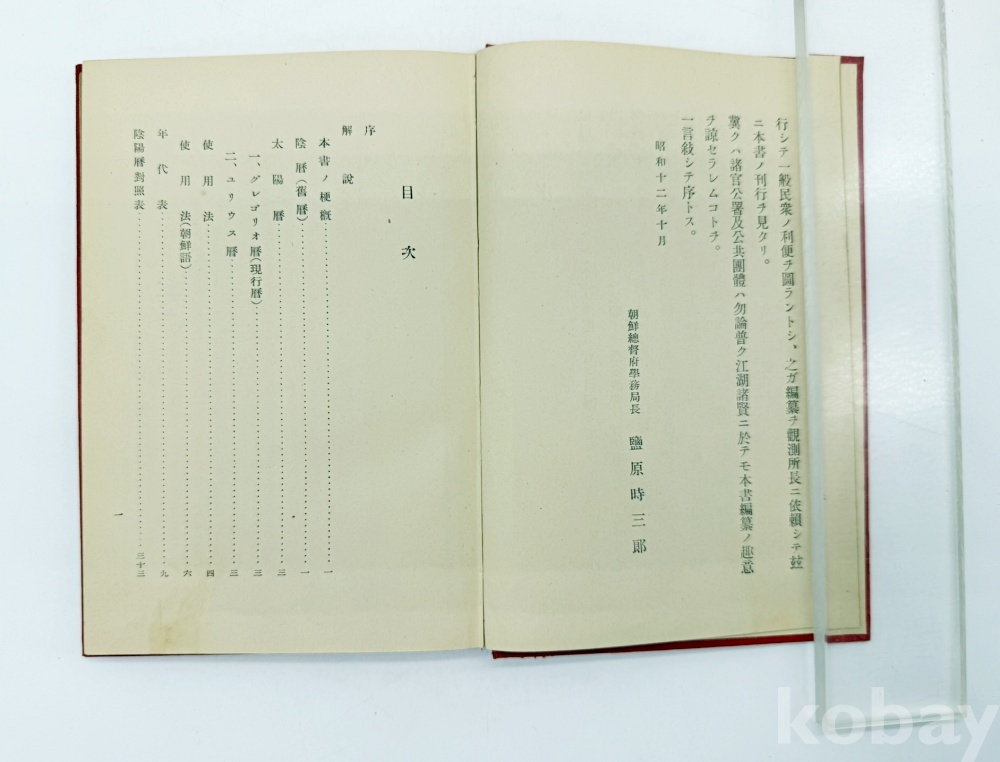 行シテ一般民衆ノ利便ヲ圖ラントシ、之ガ編纂ヲ觀測所長ニ依賴シテ玆
ニ本書ノ刊行ヲ見タリ。
冀クハ諸官公署及公共團體ハ勿論普ク江湖諸賢ニ於テモ本書編纂ノ趣意
ヲ諒セラレムコトヲ。
一言敍シテ序トス。
昭和十二年十月
朝鮮總督府學務局長 鹽原時三郞
目次
序
解說
本書ノ梗槪……一
陰曆(舊曆)……一
太陽曆……三
一、グレゴリオ曆(現行曆)……三
二、ユリウス曆……三
使用法……四
使用法(朝鮮語)……六
年代表……九
陰陽曆對照表……三十三
一
kobay